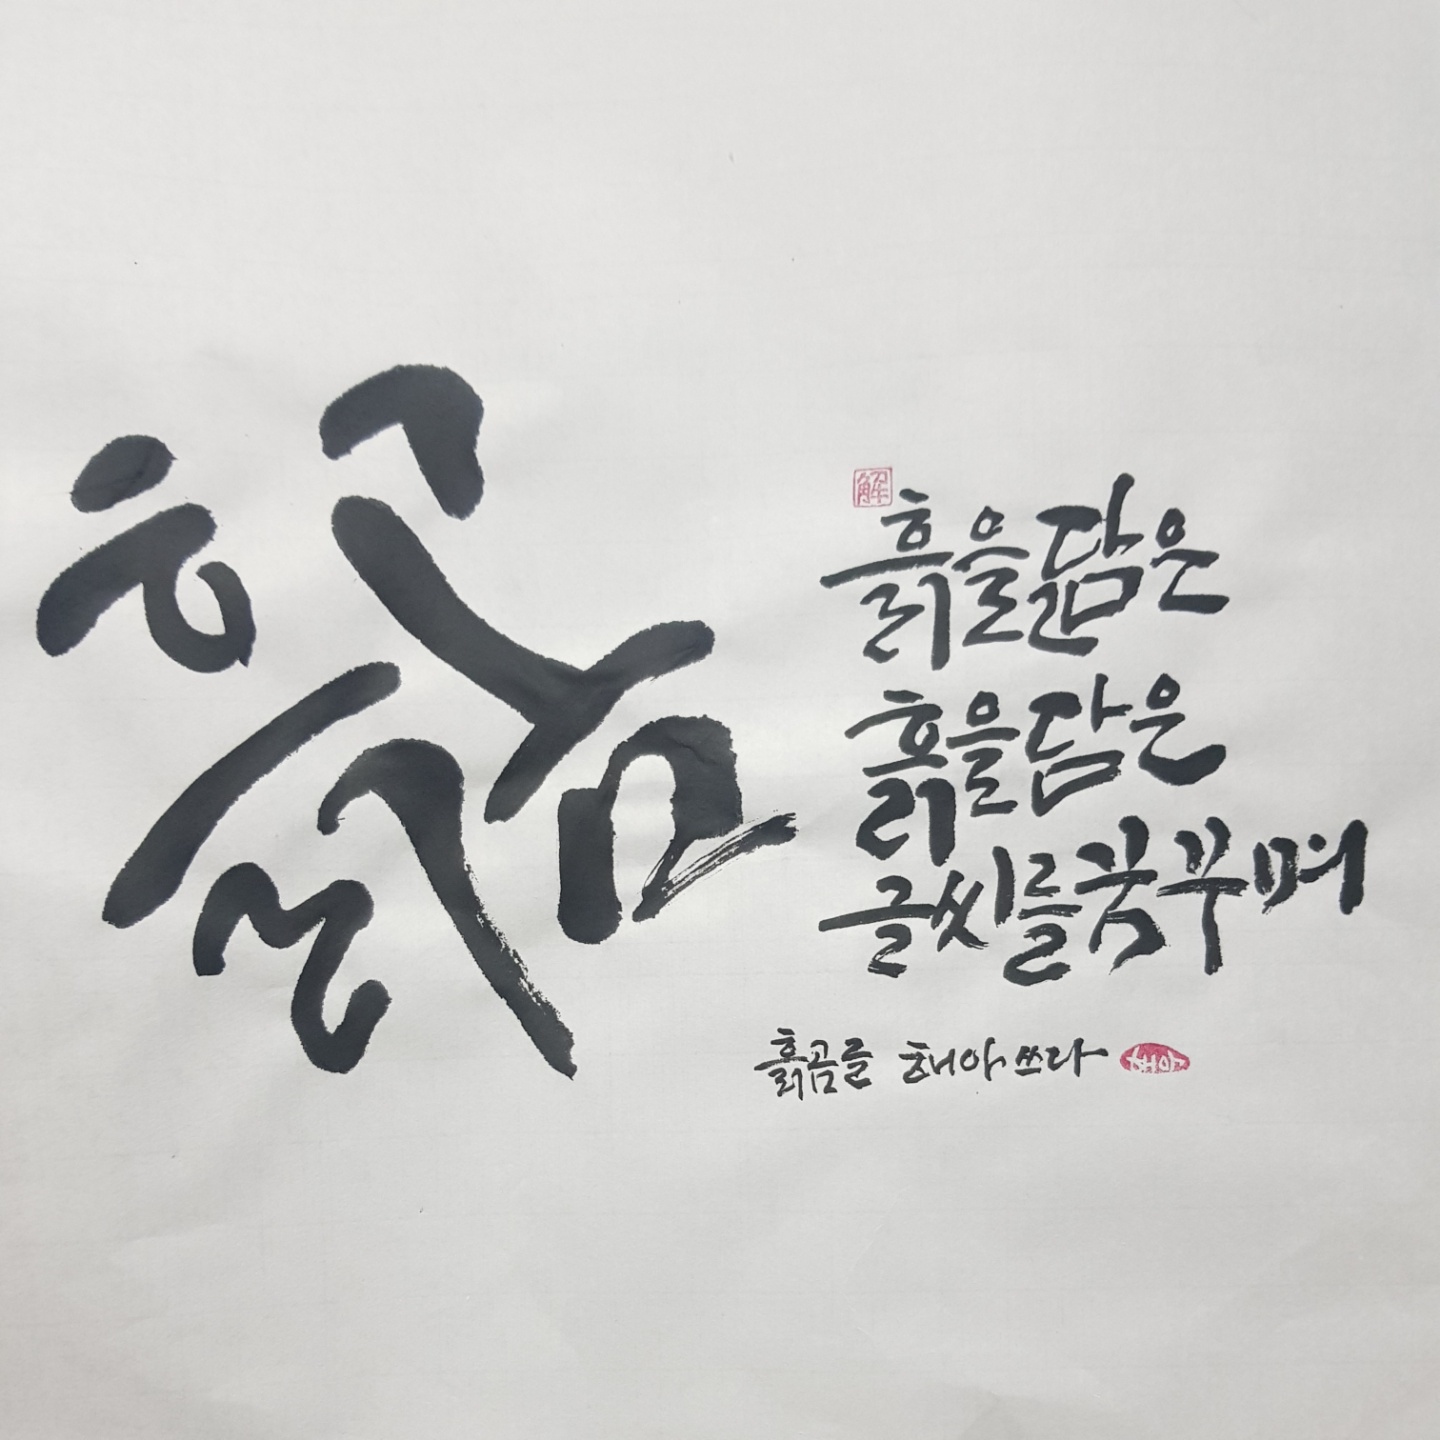 흙곰
解
흙을 닮은
흙을 담은
글씨를 꿈꾸며
흙곰를 해야 쓰다
해야